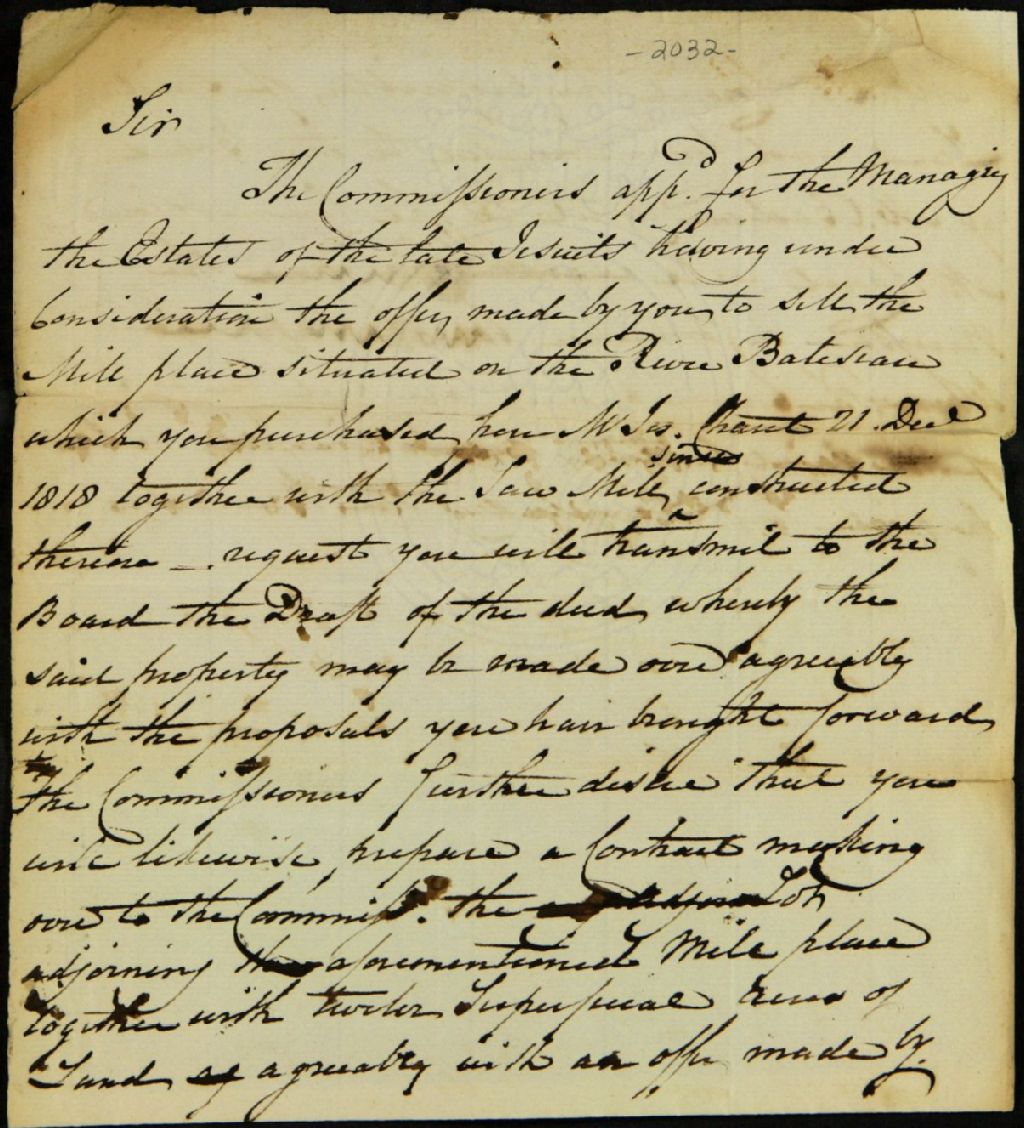 -2032-
Sir
The Commissioners app.d for the Managing
the Estates of the late Jesuits having under
Consideration the offer made by you to sell the
Mill place situated on the River Batescau
which you purchased from Mr Jos. 21 Decr
1818 together with the Saw Mill since constructed
thereon _. request you will transmit to the
Board the Draft of the deed whereby the
said property may be made over agreeably
with the proposals you have brought forward
The Commissioners further desire that you
will likewise prepare a Contract making
over to the Commiss.rs the Lot
adjoining the aforementioned Mill place
together with twelve Superficial acres of
Land agreeably with an offer made by